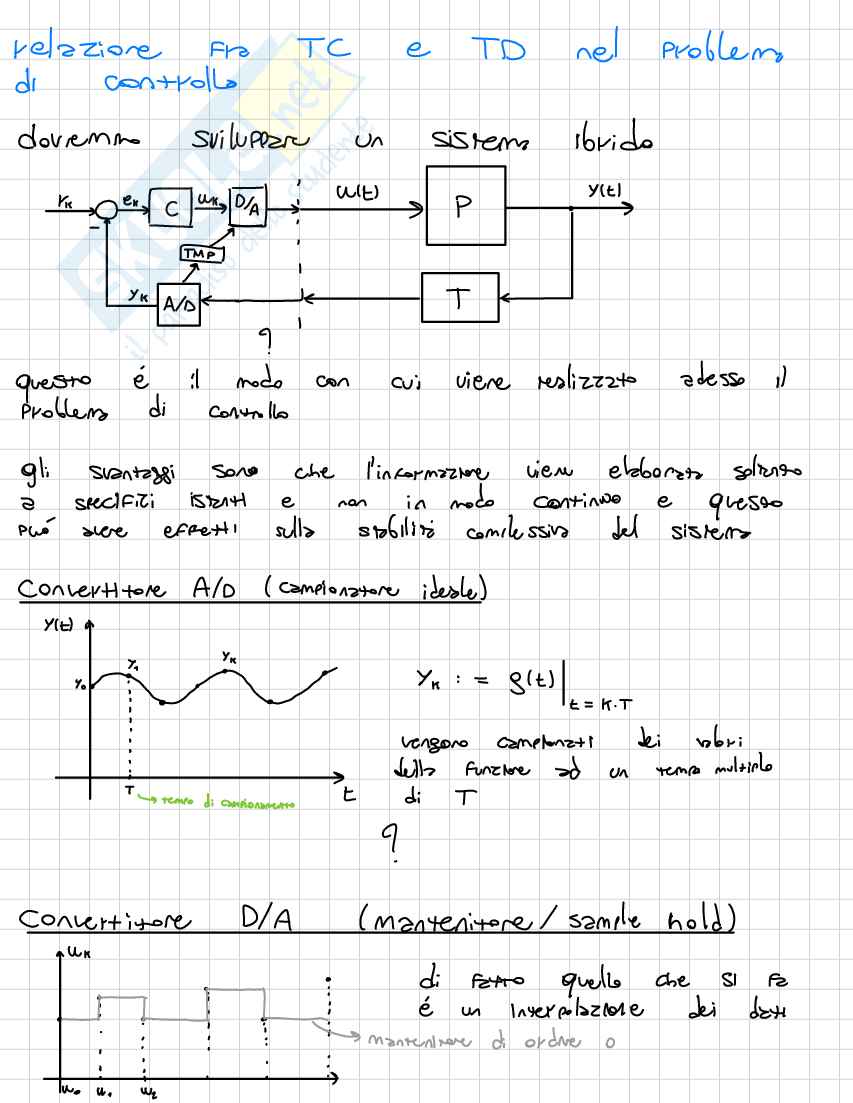 relazione fra TC e TD nel problema
di controllo
dovremmo sviluppare un sistema ibrido
rₖ eₖ C uₖ D/A u(t) P y(t)
-
TMP
yₖ A/D T
?
questo é il modo con cui viene realizzato adesso il
problema di controllo
gli svantaggi sono che l'informazione viene elaborata soltanto
a specifici istanti e non in modo continuo e questo
puó avere effetti sulla stabilitá complessiva del sistema
Convertitore A/D (campionatore ideale)
y(t)
y₀ y₁ yₖ
yₖ := y(t)|t=k·T
vengono campionati dei valori
della funzione ad un tempo multiplo
di T
T → tempo di campionamento t
?
Convertitore D/A (mantenitore / sample hold)
uₖ
di fatto quello che si fa
é un interpolazione dei dati
mantenitore di ordine 0
u₀ u₁ u₂
skuola.net
il paradiso dello studente